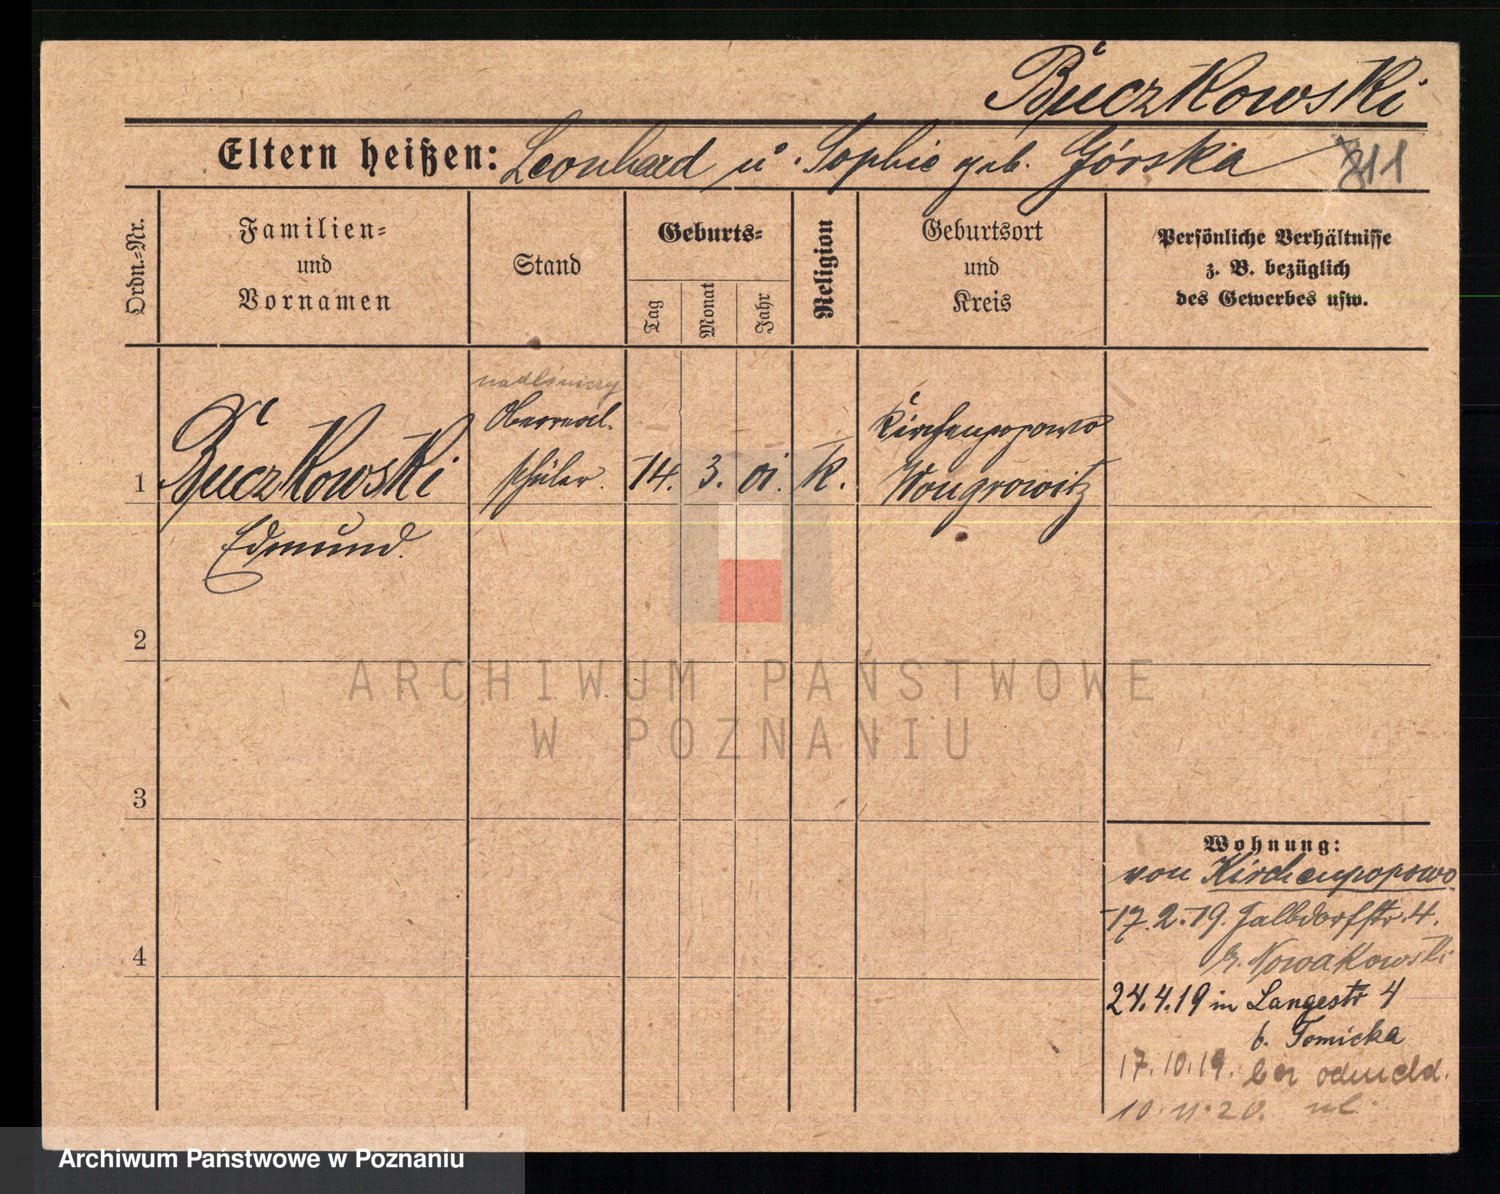 Buczkowski
Eltern heißen: Leonhard u. Sophie geb. Górska 311
Ordn.-Nr.
Familien-
und
Vornamen
Stand
Geburts-
Tag
Monat
Jahr
Religion
Geburtsort
und
Kreis
Persönliche Verhältnisse
z. B. bezüglich
des Gewerbes usw.
nadleśniczy
Oberreal.
schüler.
1 Buczkowski 14. 3. 01. K.
Kirchenpopowo
Wongrowitz
Edmund.
2
3
4
ARCHIWUM PAŃSTWOWE
W POZNANIU
Wohnung:
von Kirchenpopowo
17.2.19. 4.
Nowakowski
24.4.19 in Langestr 4
b. Tomicka
17.10.19. bez odmeld.
Archiwum Państwowe w Poznaniu